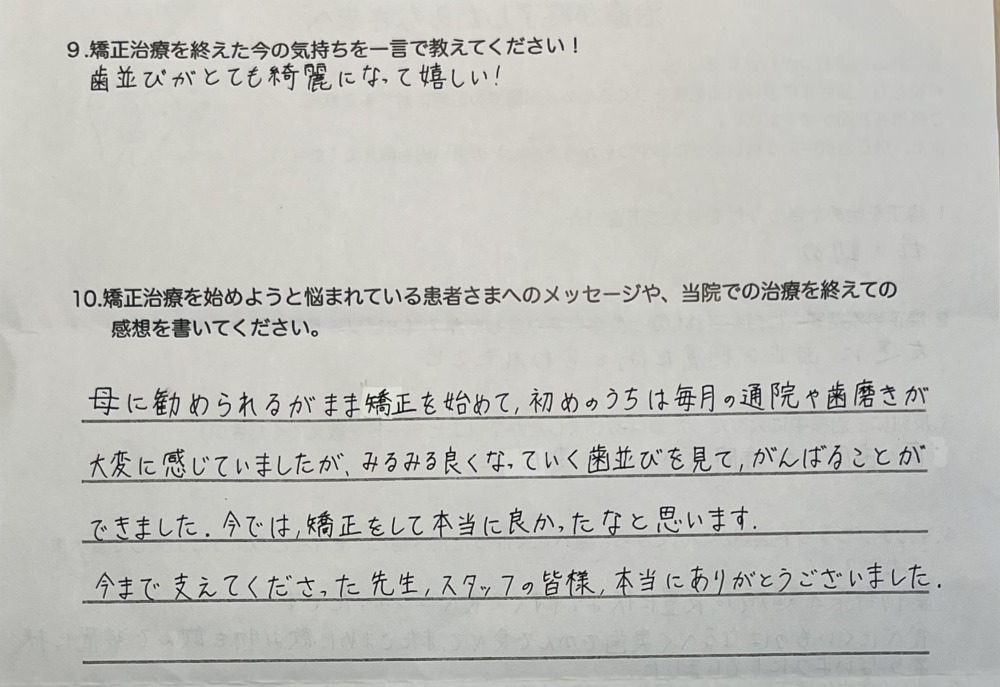 9.矯正治療を終えた今の気持ちを一言で教えてください！
歯並びがとても綺麗になって嬉しい!
10.矯正治療を始めようと悩まれている患者さまへのメッセージや、当院での治療を終えての
感想を書いてください。
母に勧められるがまま矯正を始めて,初めのうちは毎月の通院や歯磨きが
大変に感じていましたが、みるみる良くなっていく歯並びを見て,がんばることが
できました.今では,矯正をして本当に良かったなと思います.
今まで支えてくださった先生,スタッフの皆様,本当にありがとうございました.